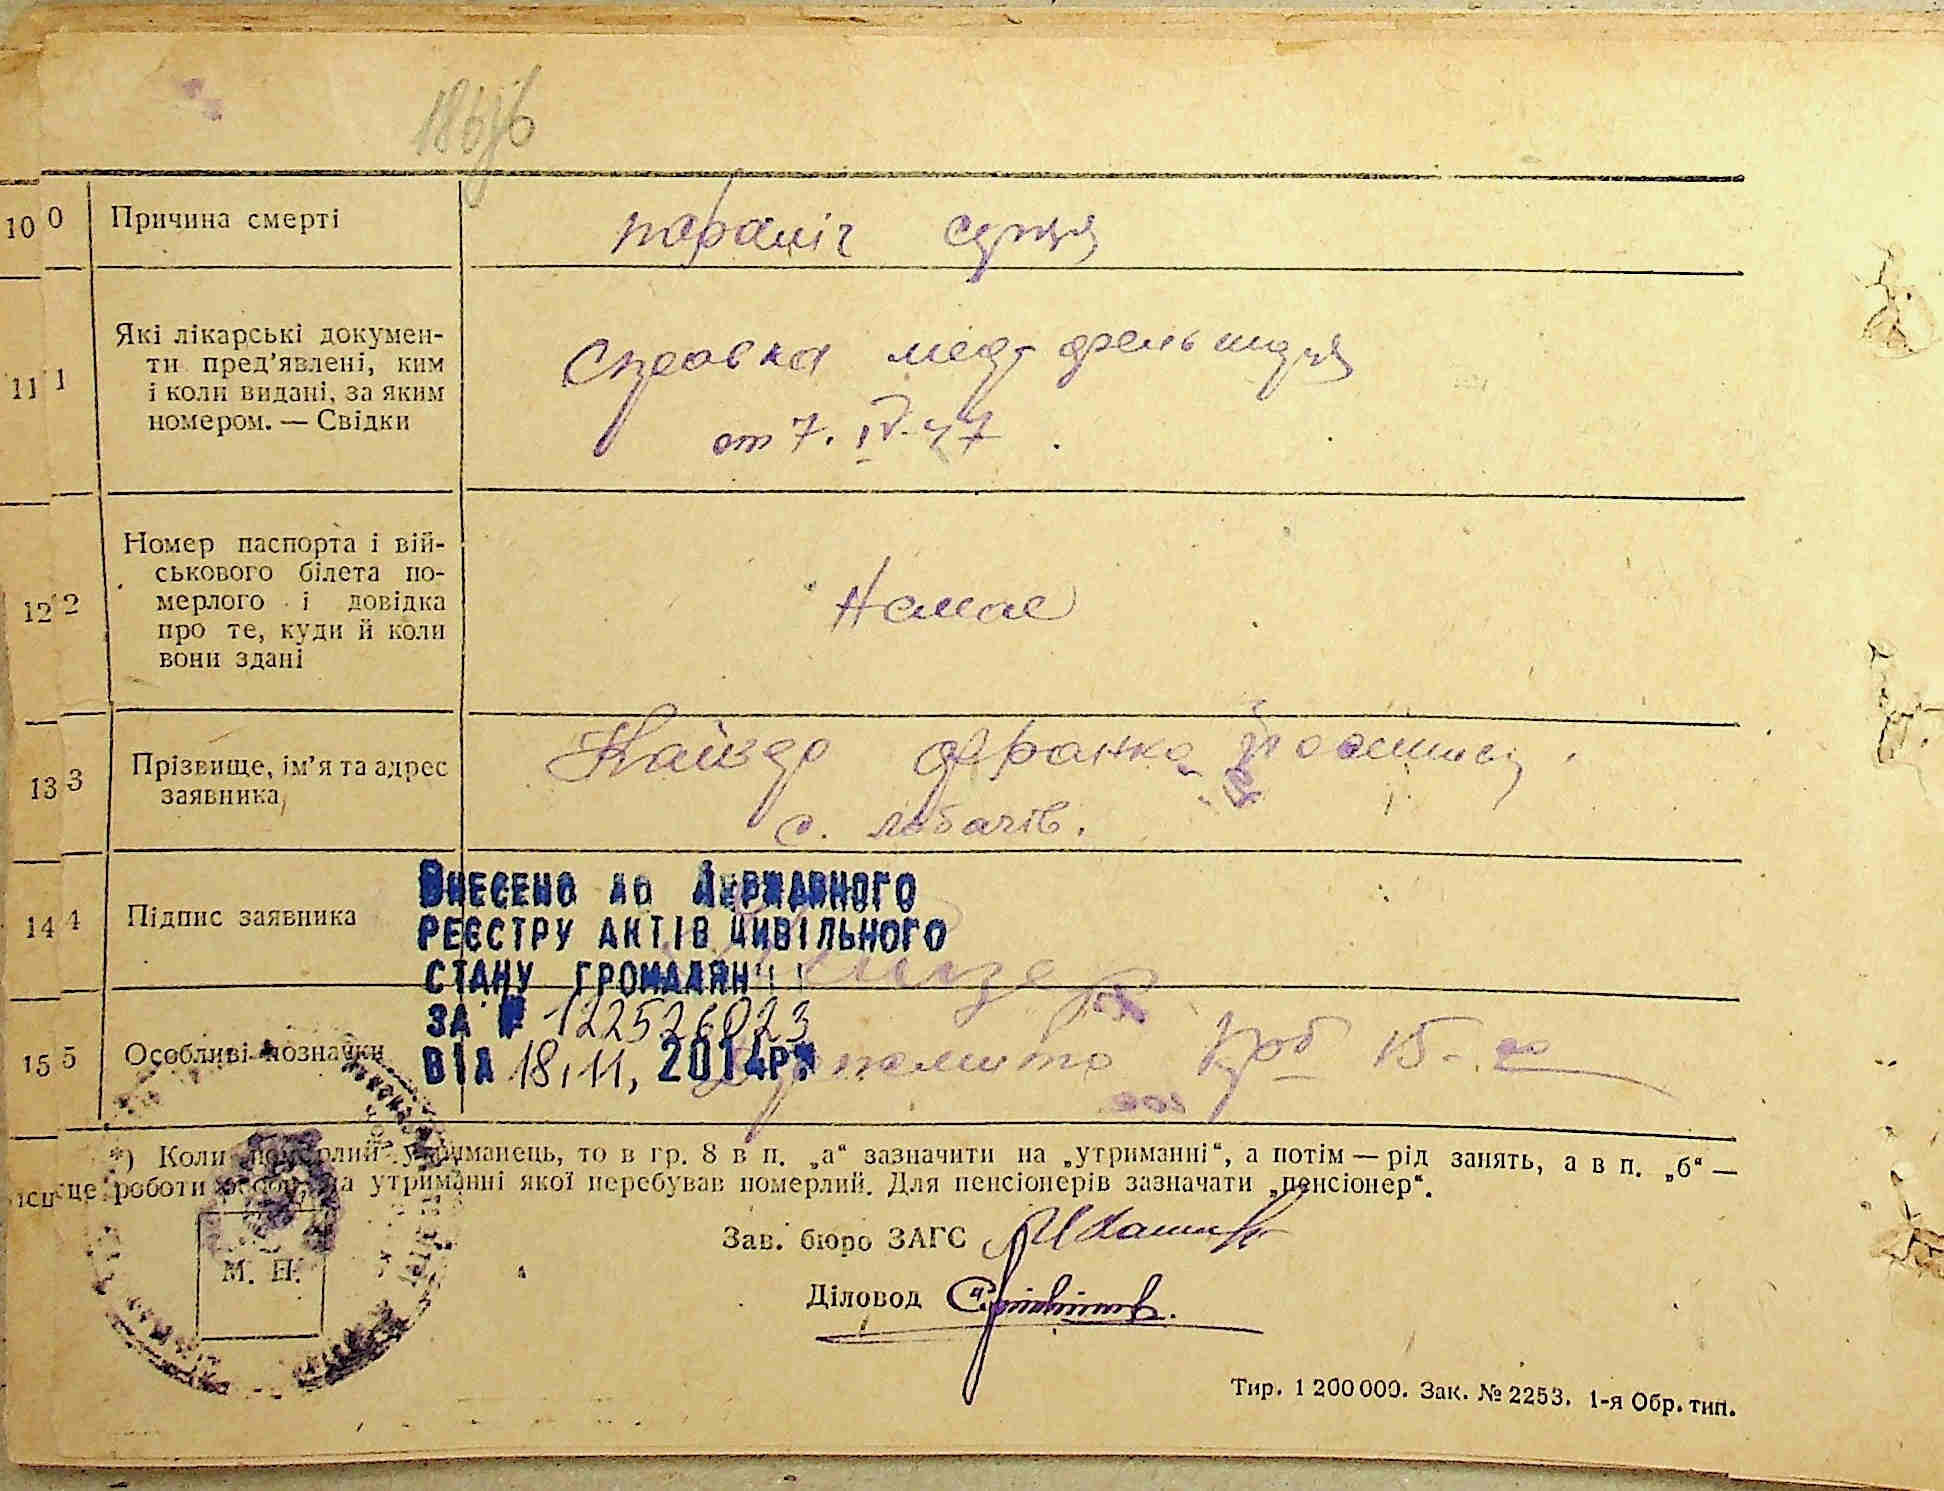 10 0 Причина смерті параліч серця
11 1 Які лікарські докумен-
ти пред'явлені, ким
і коли видані, за яким
номером. — Свідки
Справка мед фельшеря
от 7. IV-47
12 2 Номер паспорта і вій-
ськового білета по-
мерлого і довідка
про те, куди й коли
вони здані
Немае
13 3 Прізвище, ім'я та адрес
заявника
Найда Франка
с. Лобачів.
14 4 Підпис заявника
15 5 Особливі позначки
Внесено до Державного
реєстру актів цивільного
стану громадян
за № 122526023
від 18.11. 2014р.
крб 15-
*) Коли померлий утриманець, то в гр. 8 в п. „а“ зазначити на „утриманні“, а потім — рід занять, а в п. „б“ —
місце роботи особи, на утриманні якої перебував померлий. Для пенсіонерів зазначати „пенсіонер“.
Зав. бюро ЗАГС
Діловод
М. П.
Тир. 1 200 000. Зак. № 2253. 1-я Обр. тип.